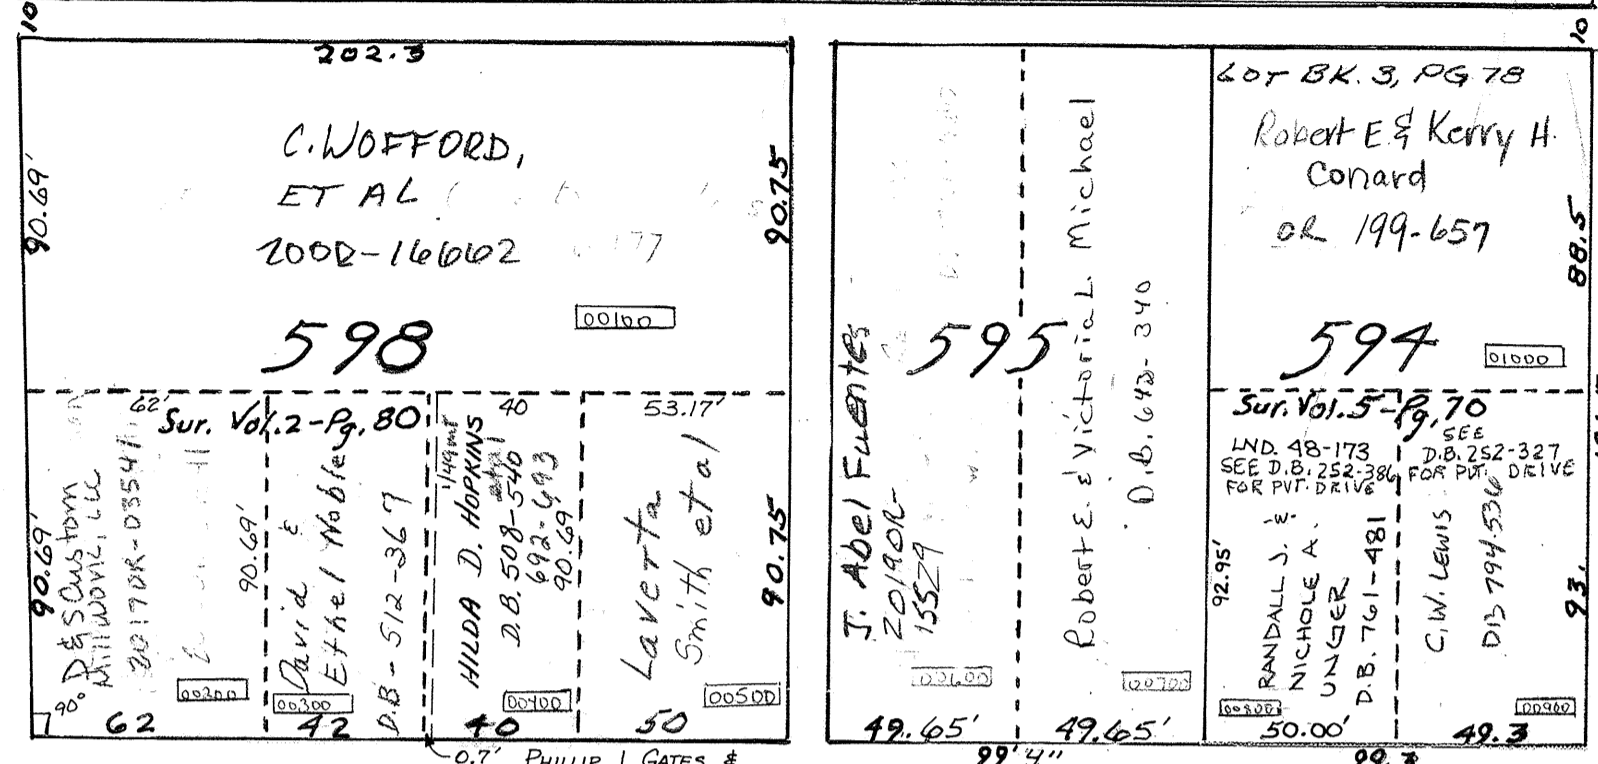 10
202.3
90.69'
C. WOFFORD,
ET AL
200R-16662
177
90.75
00100
598
62'
Sur. Vol. 2 - Pg. 80
40
53.17'
90.69'
90°
D & S Custom
Millwork, LLC
2017OR-03541
00200
62
90.69'
David &
Ethel Nobley
D.B - 512-367
00300
42
HILDA D. HOPKINS
et al
D.B. 508-540
692-693
90.69'
00400
40
Laverta
Smith et al
00500
50
90.75
0.7' PHILLIP J GATES &
J. Abel Fuentes
2019OR-
15529
595
00600
49.65'
Robert E. & Victoria L. Michael
D.B. 643-340
00700
49.65'
99'4"
10
LOT BK. 3, PG 78
Robert E. & Kerry H.
Conard
OR 199-657
88.5
594
01000
Sur. Vol. 5 - Pg. 70
LND. 48-173
SEE D.B. 252-386
FOR PVT. DRIVE
SEE
D.B. 252-327
FOR PVT. DRIVE
92.95'
RANDALL J. -W-
NICHOLE A.
UNGER
D.B. 761-481
00800
50.00'
C.W. LEWIS
DB 794-536
00900
49.3
93.